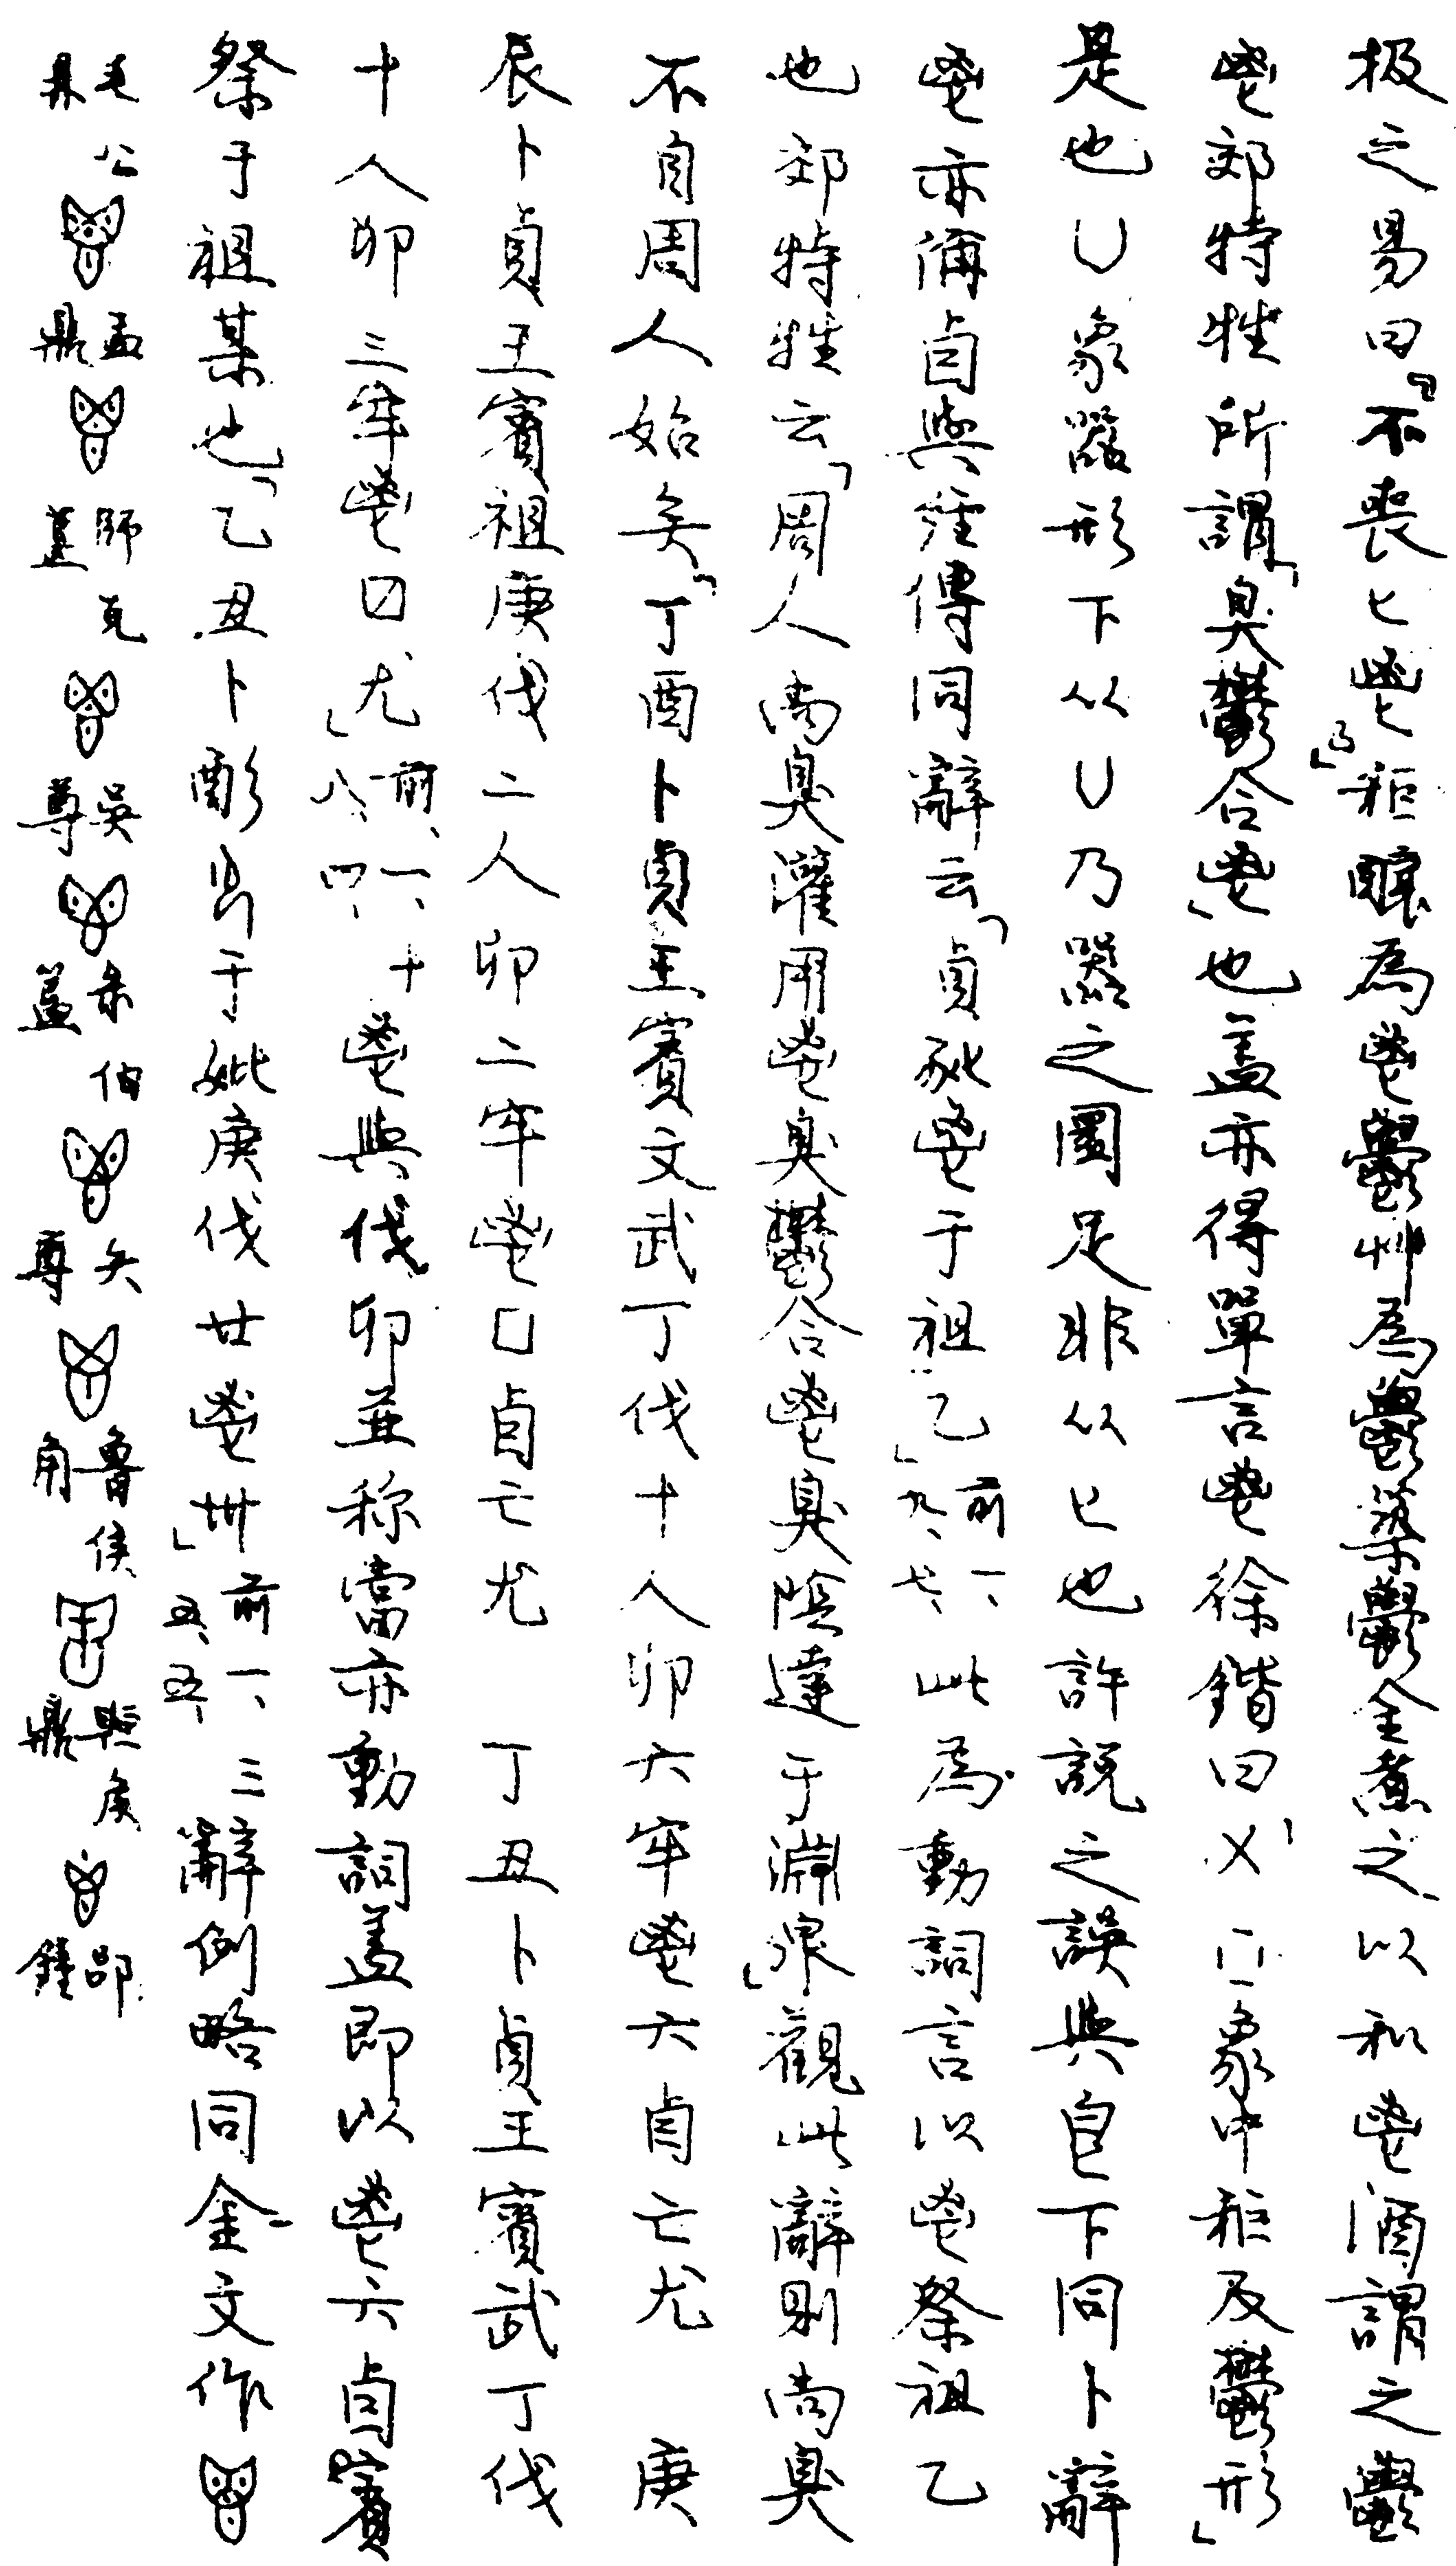 扱之易曰「不喪匕鬯」『秬釀為鬯鬱艸為鬱築鬱金煮之以和鬯酒謂之鬱
鬯郊特牲所謂「臭鬱合鬯」也蓋亦得單言鬯徐鍇曰「乂 象中秬及鬱形」
是也凵象器形下从凵乃器之圈足非从匕也許說之誤與皀下同卜辭
鬯亦偁卣與經傳同辭云「貞 鬯于祖乙」前一、九、七、此為動詞言以鬯祭祖乙
也郊特牲云「周人尚臭灌用鬯臭鬱合鬯臭陰達于淵泉」觀此辭則尚臭
不自周人始矣「丁酉卜貞王賓文武丁伐十人卯六牢鬯六卣亡尤 庚
辰卜貞王賓祖庚伐二人卯二牢鬯囗卣亡尤 丁丑卜貞王賓武丁伐
十人卯三牢鬯囗尤」前、一、十八、四、鬯與伐卯並称當亦動詞蓋即以鬯六卣賓
祭于祖某也「乙丑卜酌 于妣庚伐廿鬯卅」前一、五、五、三辭例略同金文作
毛公鼎 盂鼎 師克蓋 吳尊 彔伯蓋 矢尊 魯侯角 侯鼎 郘鐘